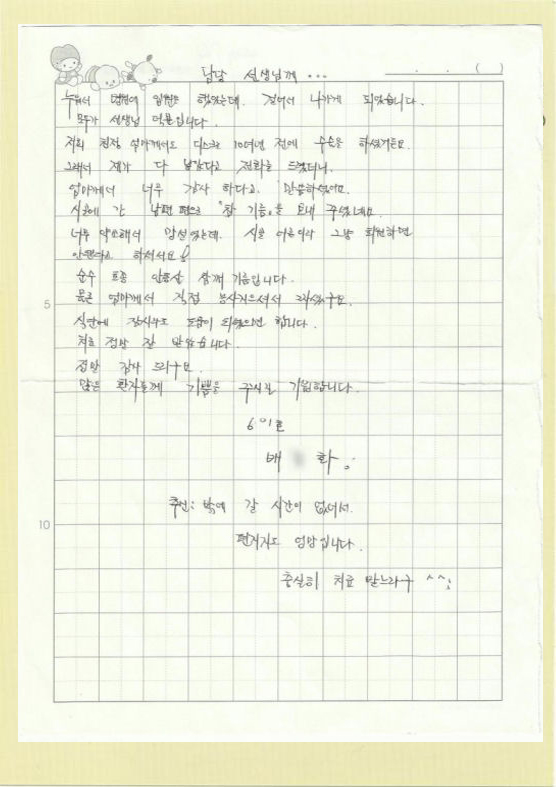 담당 선생님께 ...
. . ( )
누워서 병원에 입원을 했었는데. 걸어서 나가게 되었습니다.
모두가 선생님 덕분입니다.
저희 친정 엄마께서도 디스크로 10여년 전에 수술을 하셨거든요.
그래서 제가 다 나았다고 전화를 드렸더니.
엄마께서 너무 감사 하다고. 말씀하셨어요.
시골에 간 남편 편으로 "참기름"을 보내 주셨네요.
너무 약소해서 망설였는데. 시골 어른이라 그냥 외면하면
안된다고 하셔서요!
순수 토종 참깨 기름입니다.
물론 엄마께서 직접 농사지으셔서 짜셨구요.
식탁에 잠시나마 도움이 되었으면 합니다.
치료 정말 잘 받았습니다.
정말 감사 드리구요.
많은 환자들께 기쁨을 주시길 기원합니다.
5
601호
배 화.
추신: 밖에 갈 시간이 없어서.
10
편지지도 엉망입니다.
충실히 치료 받느라구 ^^;